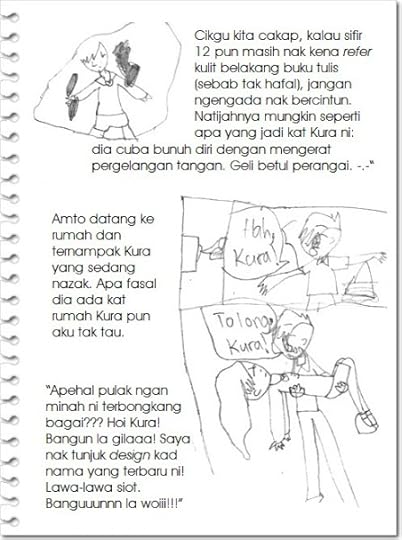 Cikgu kita cakap, kalau sifir
12 pun masih nak kena refer
kulit belakang buku tulis
(sebab tak hafal), jangan
ngengada nak bercintun.
Natijahnya mungkin seperti
apa yang jadi kat Kura ni:
dia cuba bunuh diri dengan mengerat
pergelangan tangan. Geli betul perangai. -.-"
Amto datang ke
rumah dan
ternampak Kura
yang sedang
nazak. Apa fasal
dia ada kat
rumah Kura pun
aku tak tau.
Kura!
Tolong,
Kura!
"Apehal pulak ngan
minah ni terbongkang
bagai??? Hoi Kura!
Bangun la gilaaa! Saya
nak tunjuk design kad
nama yang terbaru ni!
Lawa-lawa siot.
Banguuunnn la woiii!!!"